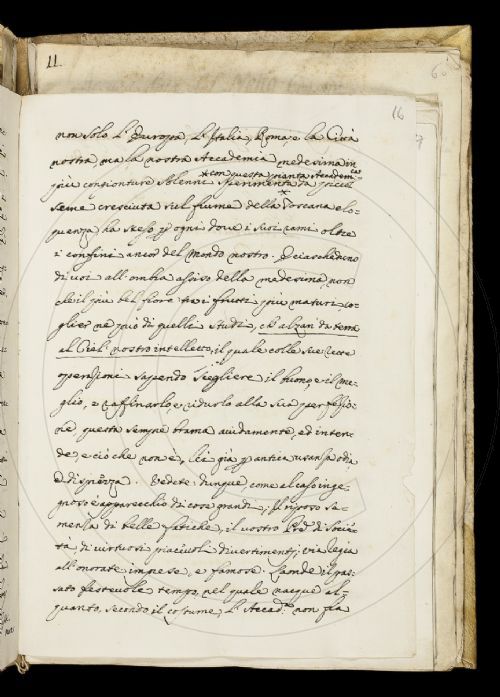 11.
16
non solo l'Europa, l'Italia, Roma, e la Città
nostra, ma la nostra Accademia medesima in
più congionture solenni sperimenta
con questa pianta Accademica
da piccol
seme cresciuta sul fiume della Toscana elo-
quenza ha steso p ogni dove i suoi rami oltre
i confini anco del Mondo nostro. E ciascheduno
di voi all'ombra assiso della medesima, non
che il più bel fiore tra i frutti più maturi co-
glier ne può di quelli studi, ch'alzan da terra
al Ciel nostro intelletto, il quale colle sue
operazioni sapendo scegliere il buono e il me-
glio, e raffinarlo, e ridurlo alla sua perfezzio-
ne questa sempre brama avidamente, ed inten-
de, e ciò che non è, lei già p antica usanza odia
e disprezza. Vedete dunque come al caso inge-
gnoso e apparecchio di cose grandi, il riposo se-
menza di belle fatiche, il vostro di Socie-
tà di virtuosi piacevoli divertimenti,
all'onorate imprese, e famose. Laonde il pas-
sato festevole tempo, nel quale nacque al-
quanto, secondo il costume, l'Accad.a non fia